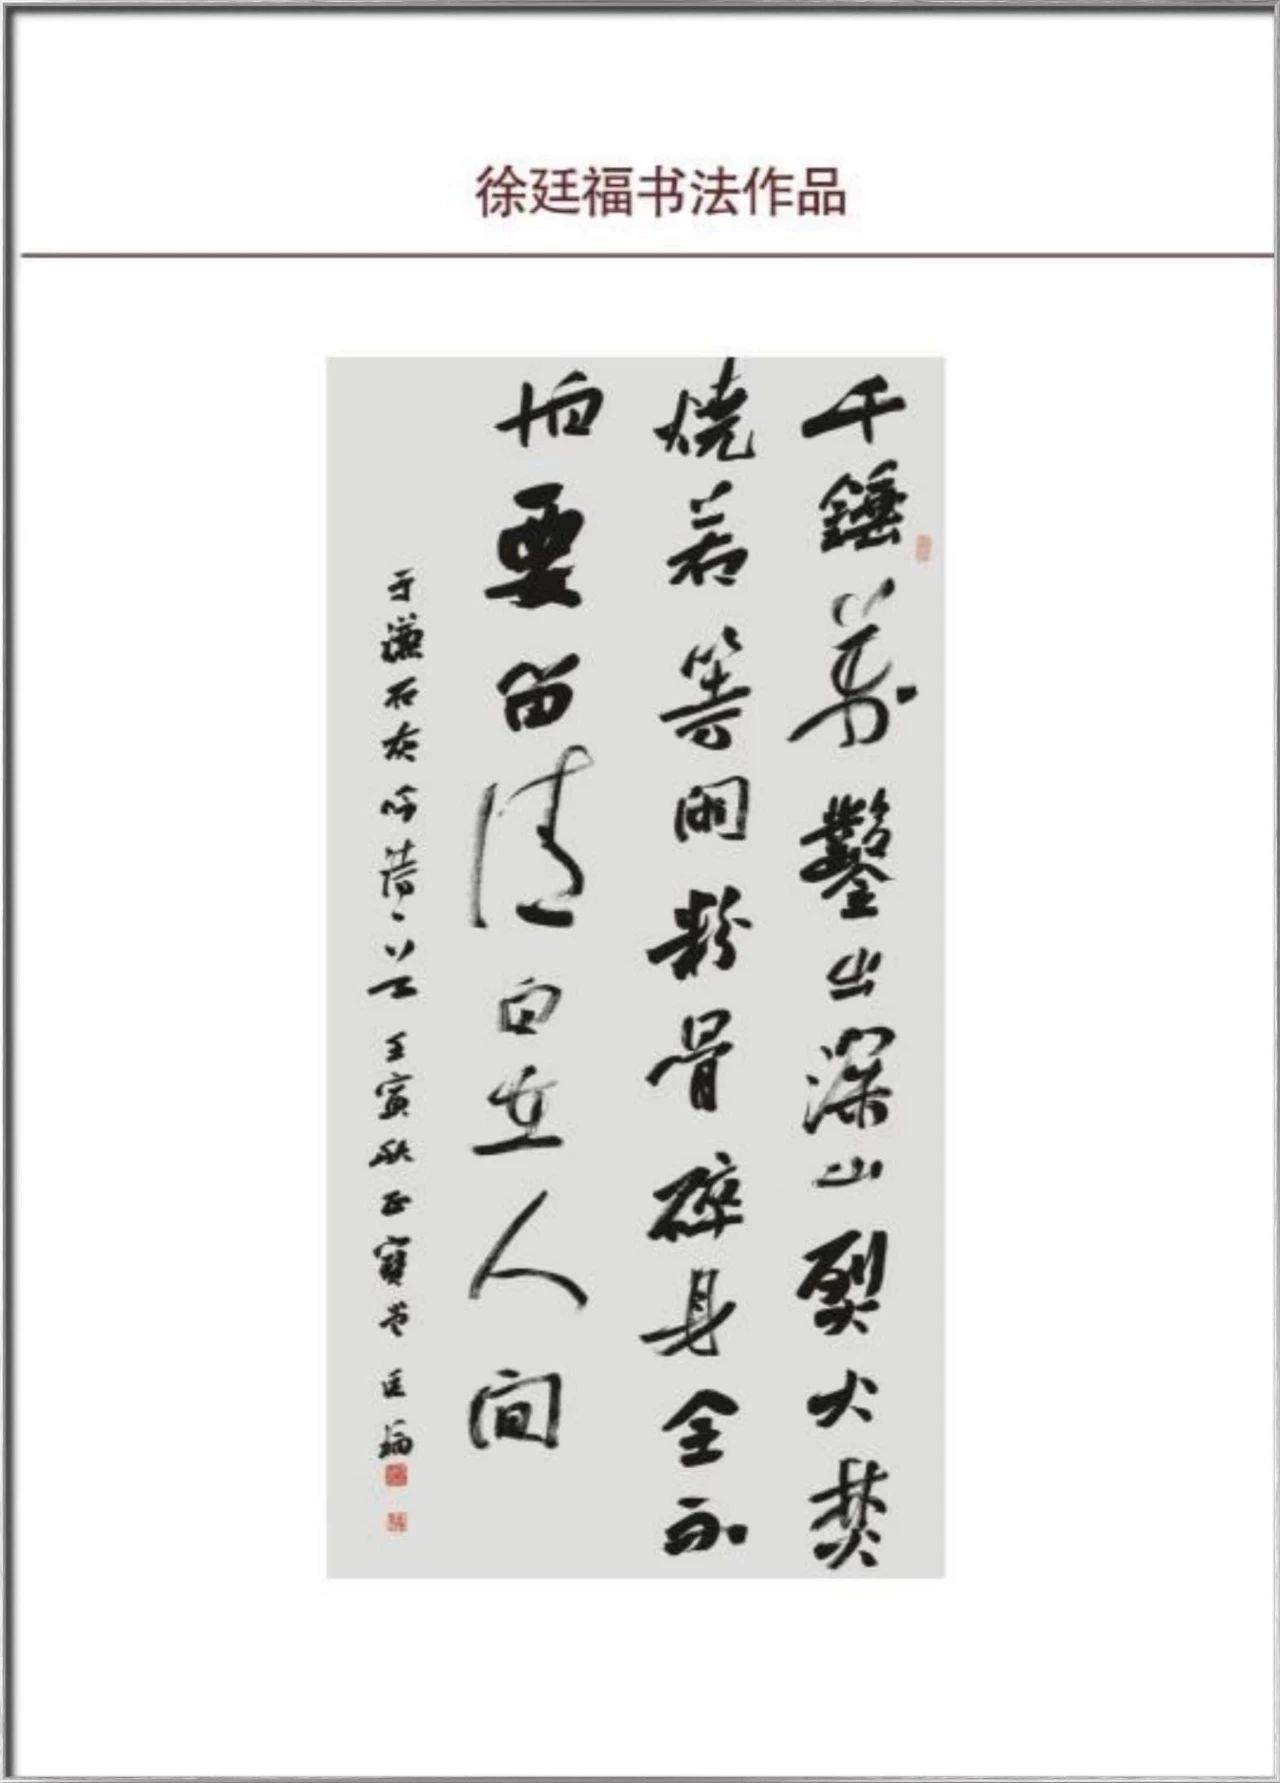 徐廷福书法作品
千錘萬鑿出深山烈火焚
燒若等闲粉骨碎身全不
怕要留清白在人间
于謙石灰吟诗一首壬寅秋正寶芸